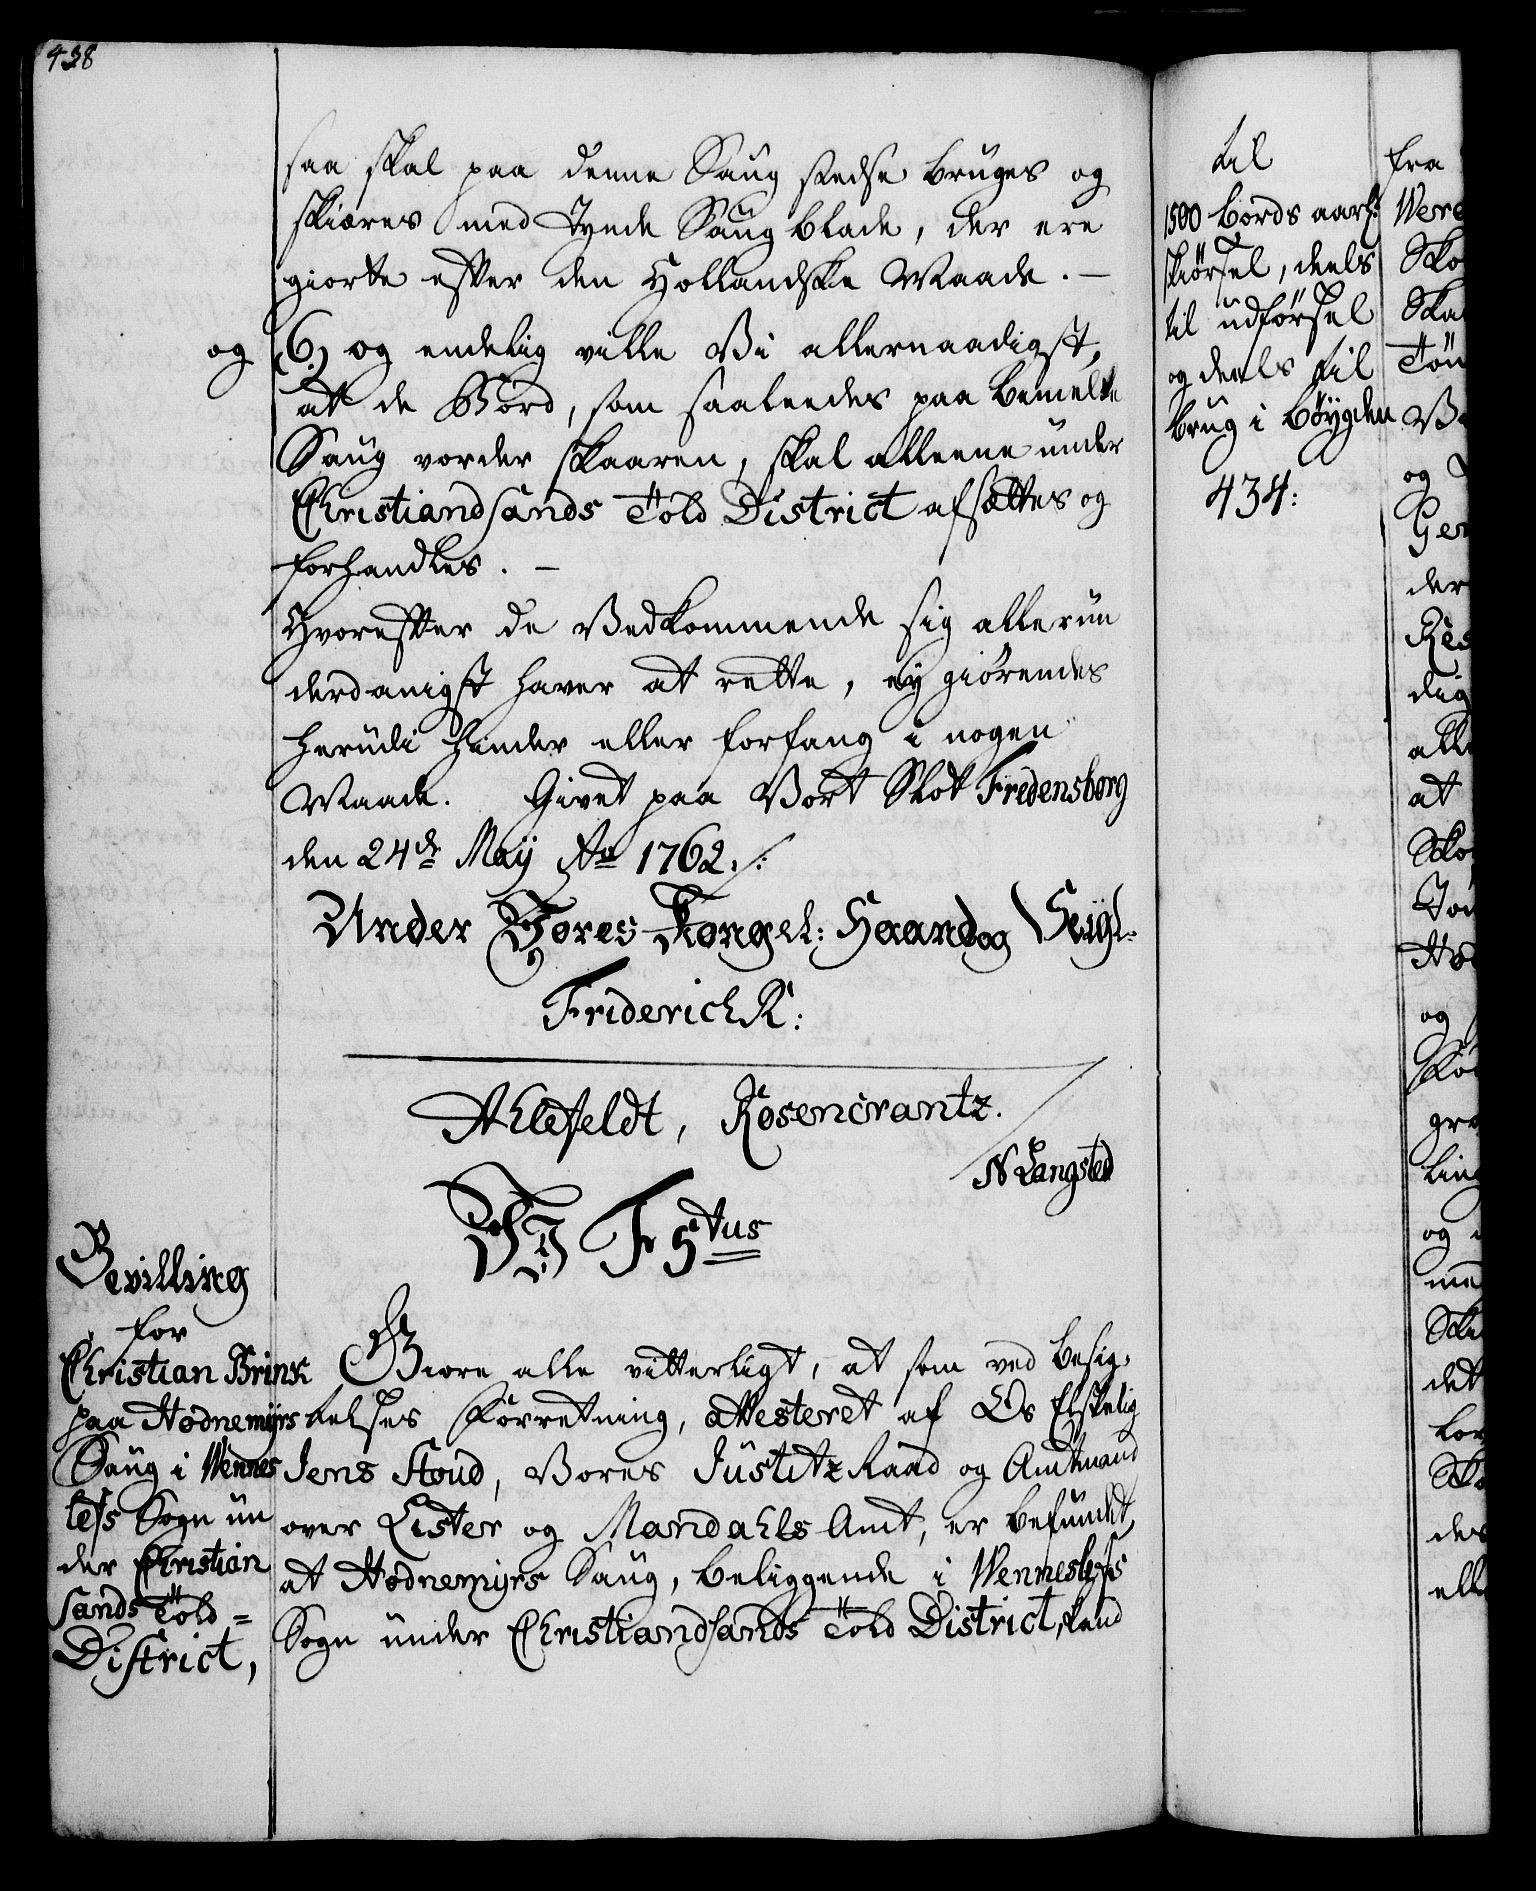 438
saa skal paa denne Saug stedse bruges og
skiæres med Tynde Saugblade, der ere
giorte efter den Hollandske Maade. –
og
6.) og endelig ville Vi allernaadigst,
at de Bord, som saaleedes paa bemelte
Saug vorder skaaren, skal alleene under
Christiandsands Told District afsættes og
forhandles. –
Hvorefter de Vedkommende sig allerun
derdanigst haver at rette, ey giörendes
herudi hinder eller forfang i nogen
Maade. Givet paa Vort Slot Fredensborg
den 24de May Ao 1762./.
Under Vores Kongel: Haand og Seigl.
Friderich R:
Ahlefeldt, Rosencrantz.
N Langsted
Vi F 5tus
Bevilling
for
Christian Brinch
paa Hodnemyrs
Saug i Wennes
lefs Sogn un
der Christian
sands Told=
District,
Giore alle vitterligt, at som ved besig-
telses Forretning, attesteret af Os Elskelig
Jens Stoud, Vores Justitz Raad og Amtmand
over Lister og Mandahls Amt, er befundet,
at Hodnemyrs Saug, beliggende i Wenneslefs
Sogn under Christiandsands Told District, kand
til
1500 bords aarl:
skiørsel, deels
til udförsel
og deels til
brug i böygden
434:
fra
Were
Sko
Ska
Tön
Ve
og
Gen
der
Res
dig
alle
at
Sko
og
gra
ling
og
me
det
Sko
des
elle